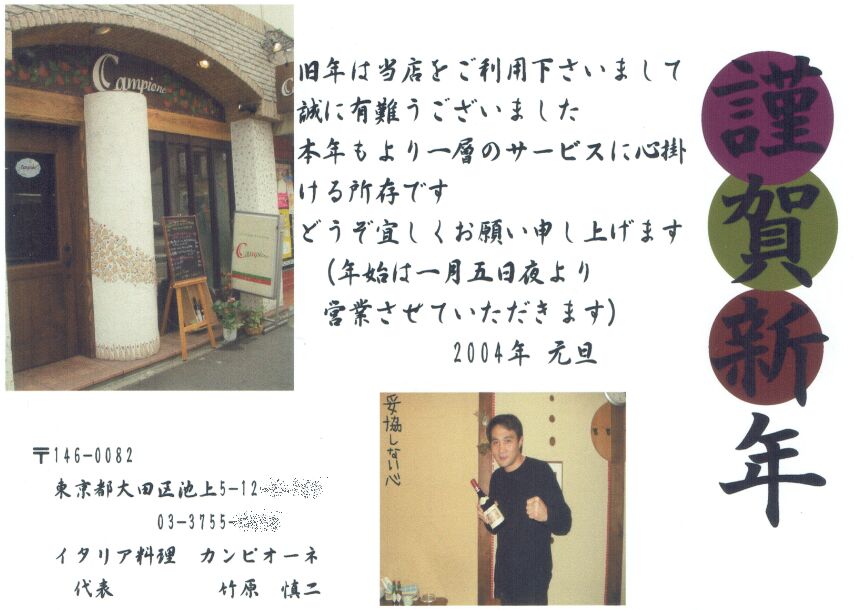 謹賀新年
旧年は当店をご利用下さいまして
誠に有難うございました
本年もより一層のサービスに心掛
ける所存です
どうぞ宜しくお願い申し上げます
(年始は一月五日夜より
営業させていただきます)
2004年 元旦
Campione
Campione
妥協しない心
〒146-0082
東京都大田区池上5-12-
03-3755-
イタリア料理 カンピオーネ
代表 竹原 慎二